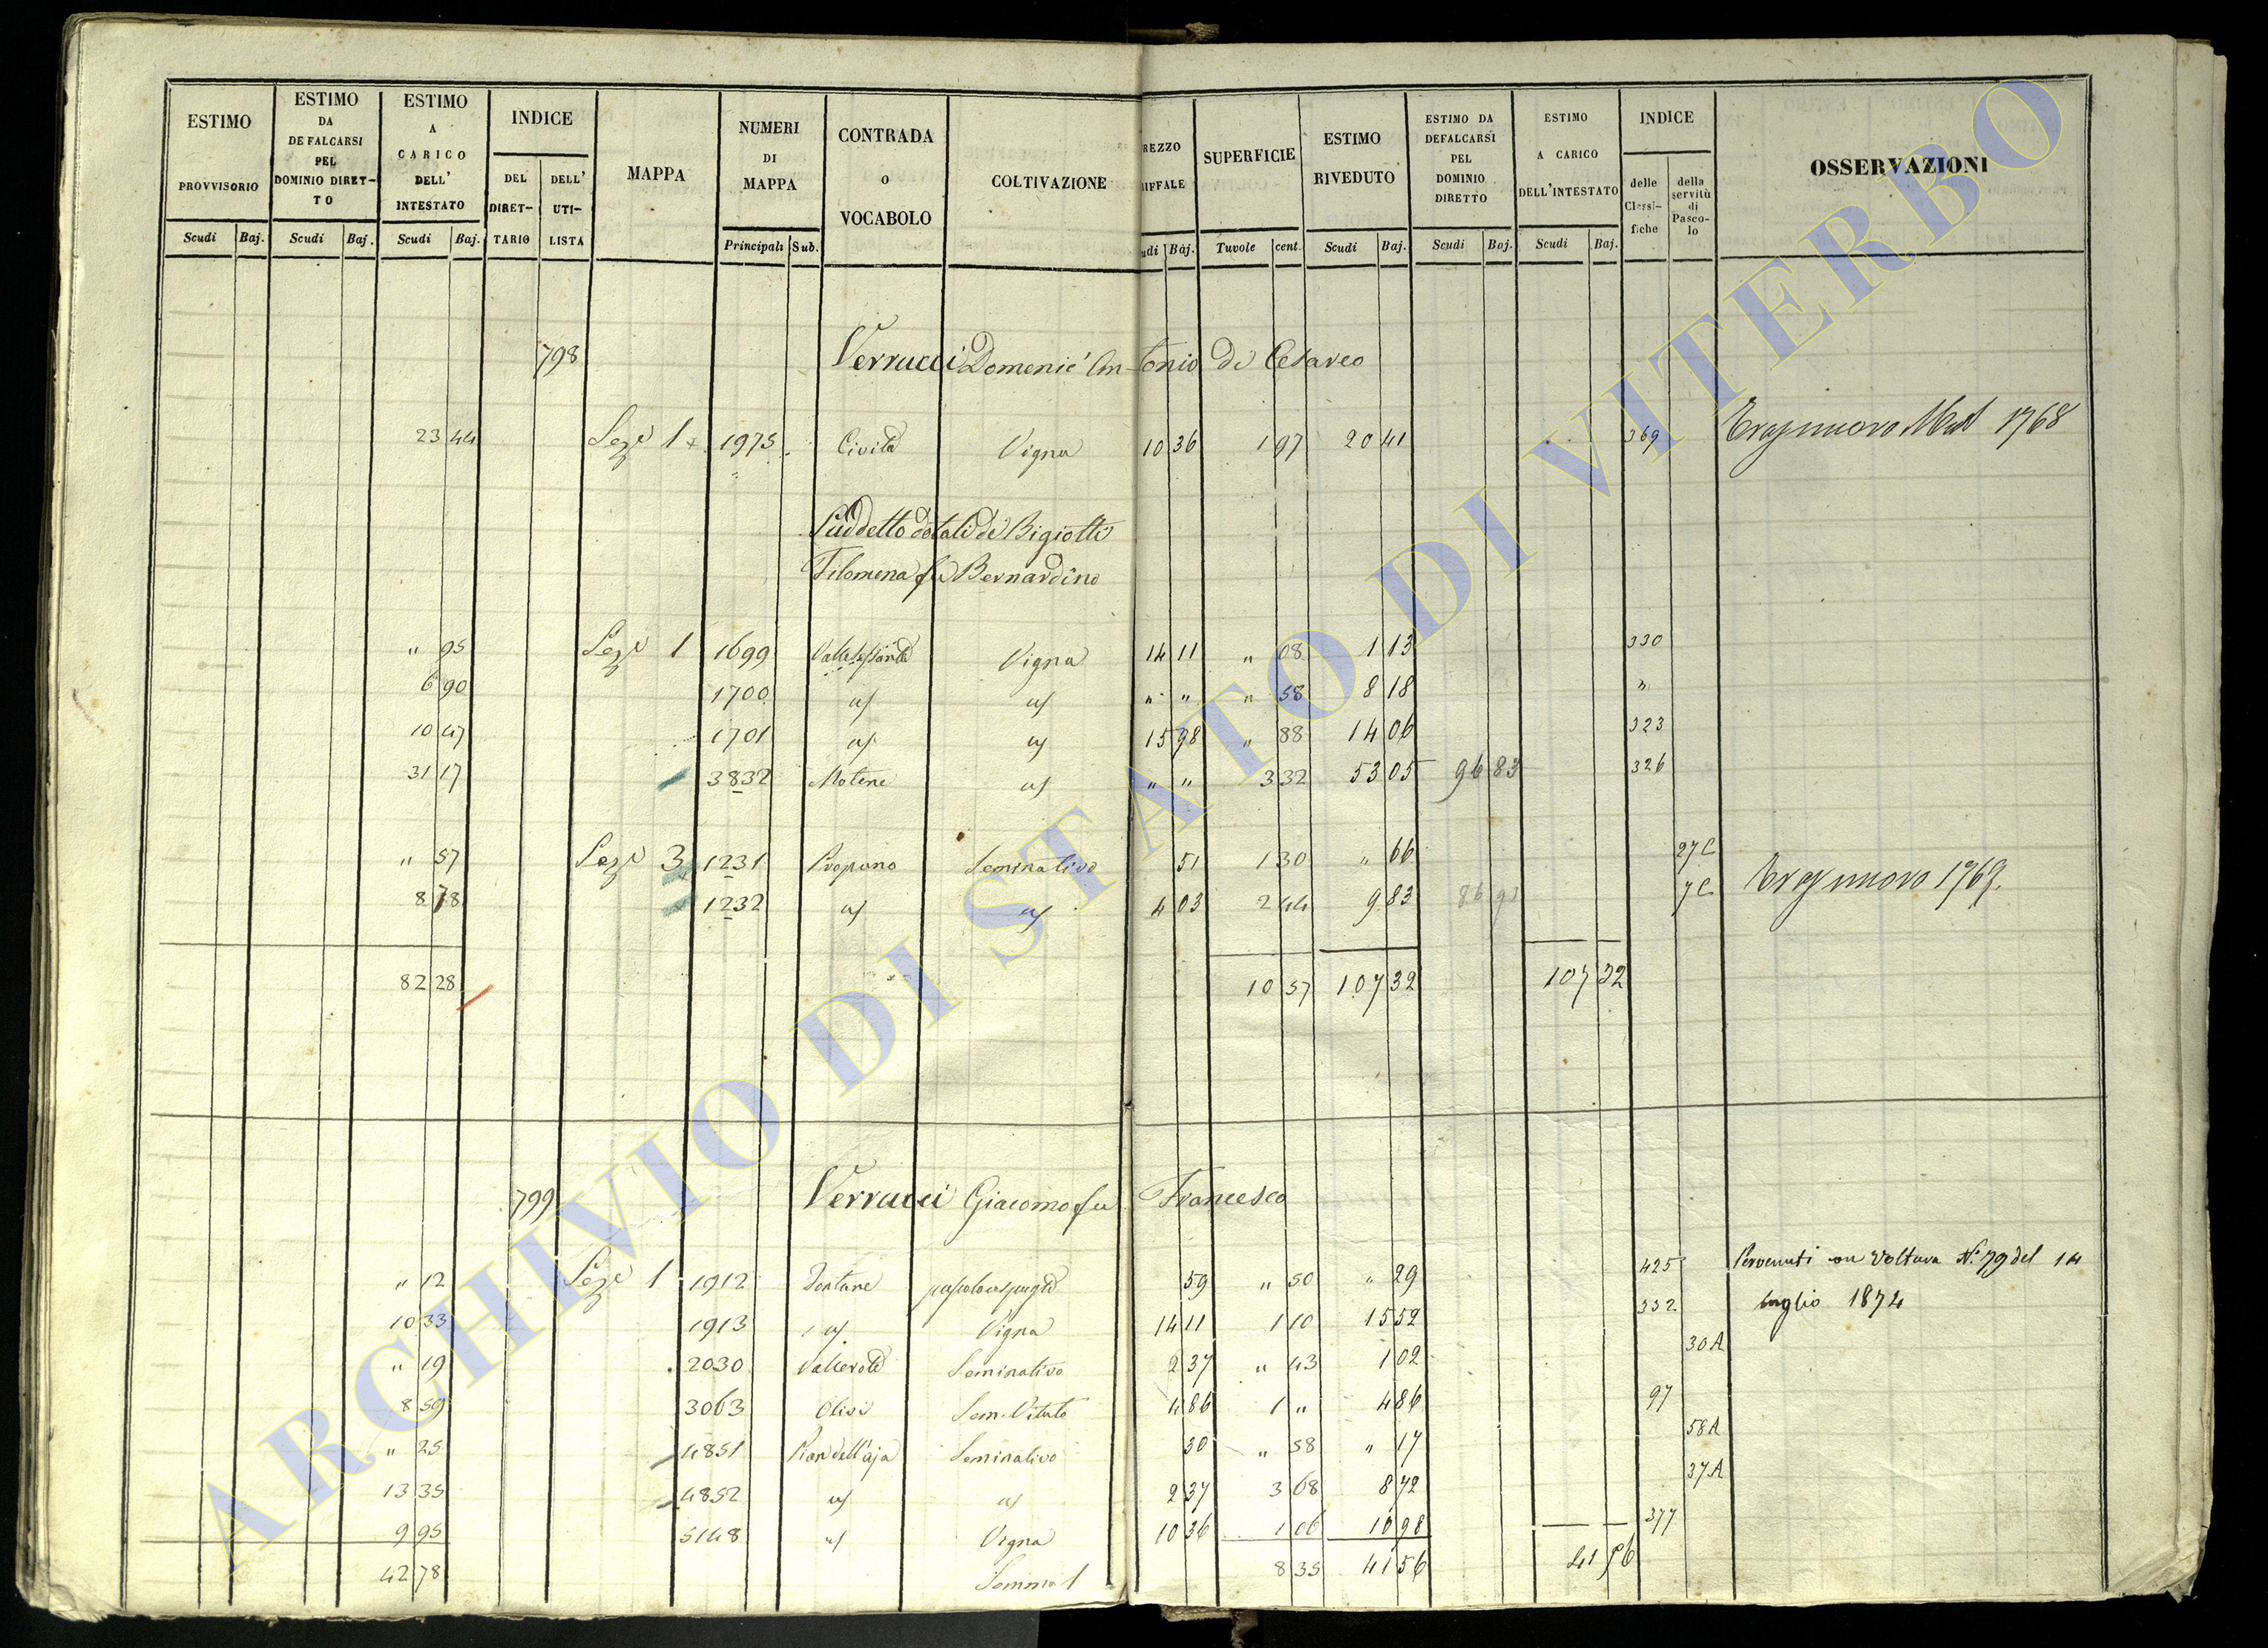 ESTIMO PROVVISORIO Scudi Baj.
ESTIMO DA DEFALCARSI PEL DOMINIO DIRET-TO Scudi Baj.
ESTIMO A CARICO DELL' INTESTATO Scudi Baj.
INDICE DEL DIRET-TARIO DELL' UTI-LISTA
MAPPA
NUMERI DI MAPPA Principali Sub.
CONTRADA o VOCABOLO
COLTIVAZIONE
REZZO RIFFALE udi Baj.
SUPERFICIE Tavole cent.
ESTIMO RIVEDUTO Scudi Baj.
ESTIMO DA DEFALCARSI PEL DOMINIO DIRETTO Scudi Baj.
ESTIMO A CARICO DELL'INTESTATO Scudi Baj.
INDICE delle Classi-fiche della servitù di Pasco-lo
OSSERVAZIONI
798 Verrucci Domenic' Antonio di Cesareo
23 44 Sez.e 1 1975 Civita Vigna 10 36 1 97 20 41 369 1768
Suddetto dotali di Bigiotti
Filomena fu Bernardino
" 95 Sez.e 1 1699 Vigna 14 11 " 08 1 13 330
6 90 1700 " " " 58 8 18 "
10 47 1701 15 98 " 88 14 06 323
31 17 3832 Molene " " 3 32 53 05 96 83 326
" 57 Sez.e 3 1231 Propano Seminativo 51 1 30 " 66 27 C
8 78 1232 4 03 2 44 9 83 7 C nuovo 1769.
82 28 10 57 107 32 107 32
799 Verrucci Giacomo fu Francesco
" 12 Sez.e 1 1912 Fontane 59 " 50 " 29 425 Pervenuti con Voltura N. 79 del 14
10 33 1913 Vigna 14 11 1 10 15 52 332 luglio 1874
" 19 2030 Seminativo 2 37 " 43 1 02 30 A
8 59 3063 Olivi Sem. Vitato 4 86 1 " 4 86 97
" 25 4851 Pian dell'aja Seminativo 30 " 58 " 17 58 A
13 35 4852 2 37 3 68 8 72 37 A
9 95 5148 Vigna 10 36 1 06 10 98 377
42 78 Somma 8 35 41 56 41 56
ARCHIVIO DI STATO DI VITERBO